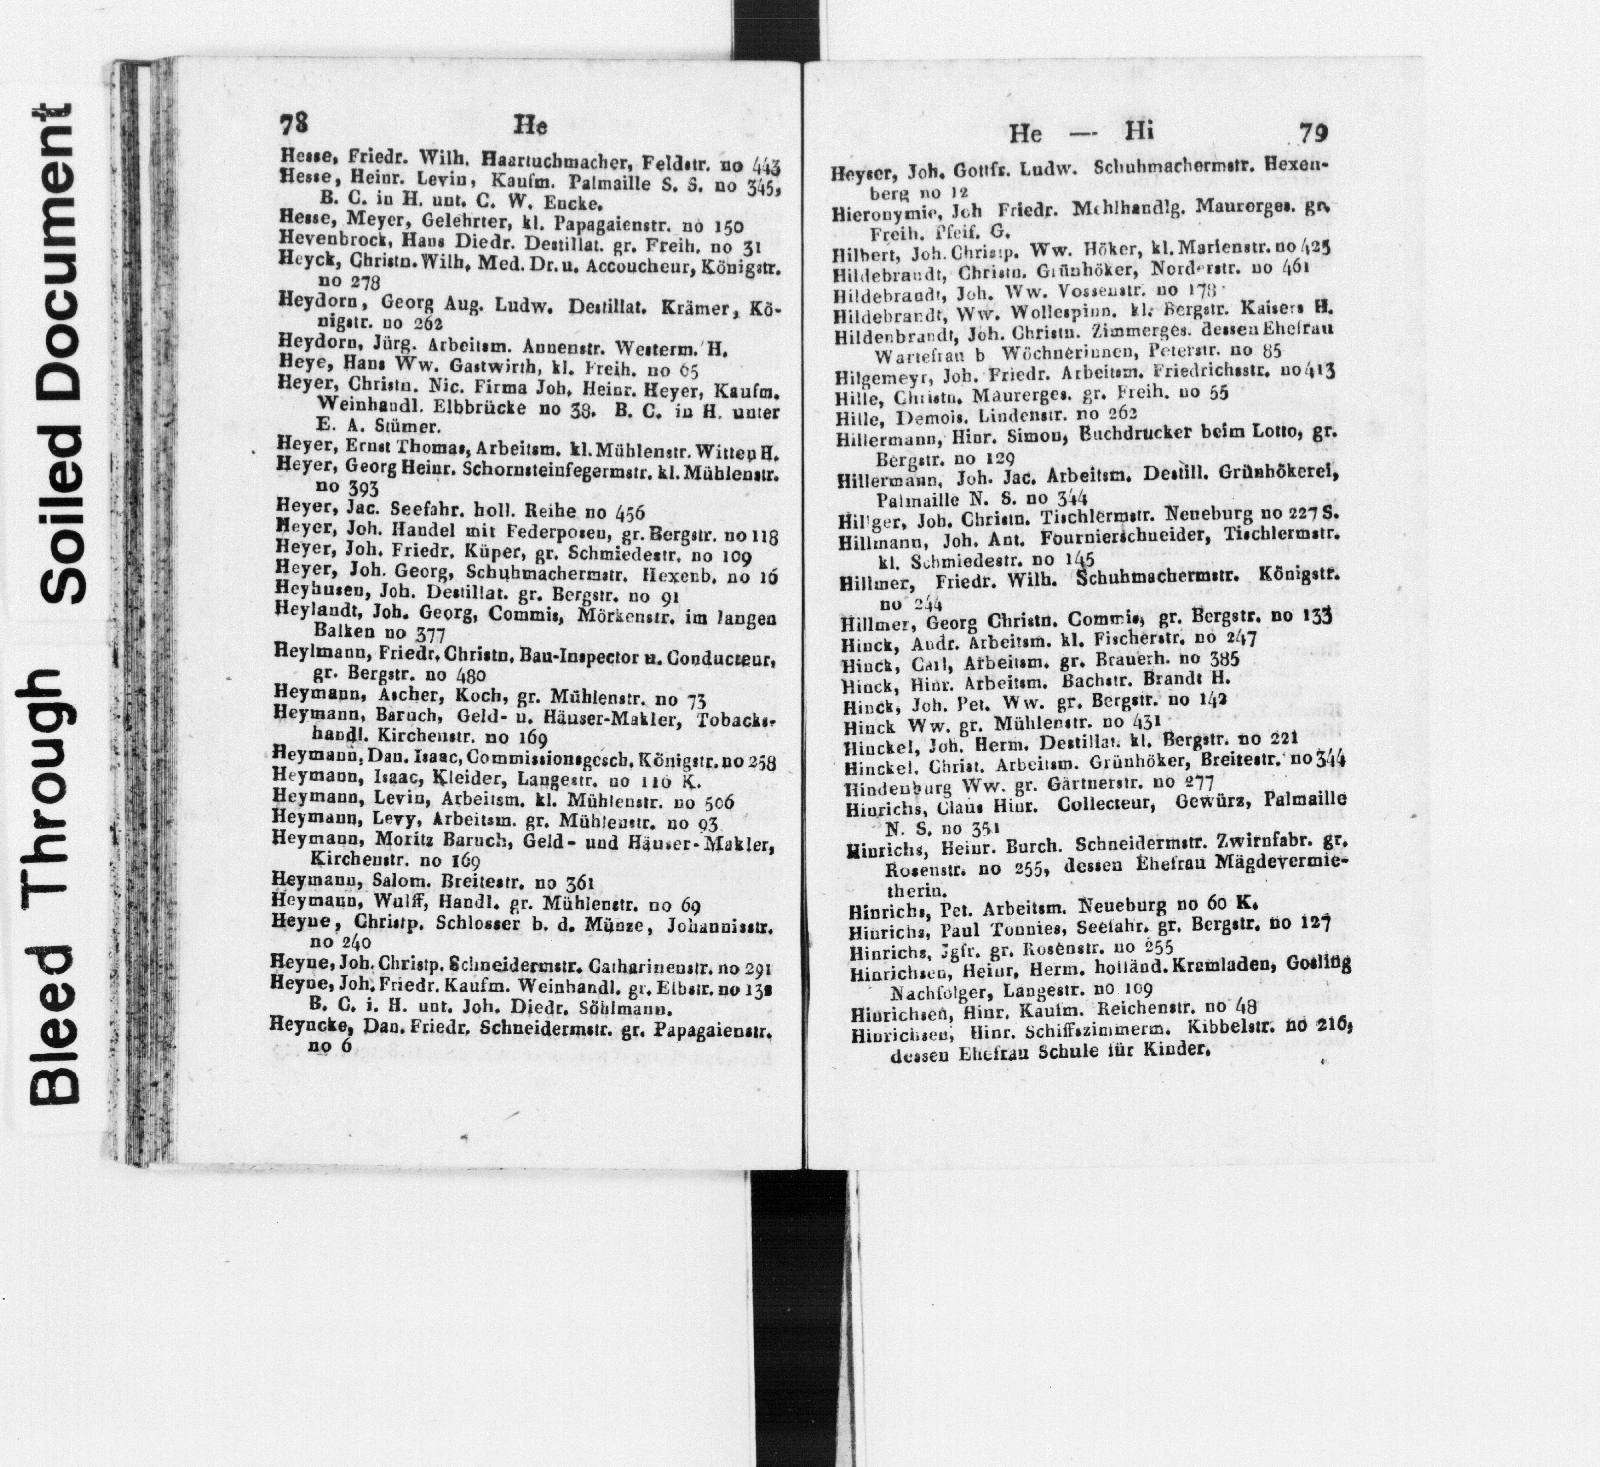 Bleed Through Soiled Document
78 He
Hesse, Friedr. Wilh. Haartuchmacher, Feldstr. no 443
Hesse, Heinr. Levin, Kaufm. Palmaille S. S. no 345,
B. C. in H. unt. C. W. Encke.
Hesse, Meyer, Gelehrter, kl. Papagaienstr. no 150
Hevenbrock, Hans Diedr. Destillat. gr. Freih. no 31
Heyck, Christn. Wilh. Med. Dr. u. Accoucheur, Königstr.
no 278
Heydorn, Georg Aug. Ludw. Destillat. Krämer, Kö-
nigstr. no 262
Heydorn, Jürg. Arbeitsm. Annenstr. Westerm. H.
Heye, Hans Ww. Gastwirth, kl. Freih. no 65
Heyer, Christn. Nic. Firma Joh. Heinr. Heyer, Kaufm.
Weinhandl. Elbbrücke no 38. B. C. in H. unter
E. A. Stümer.
Heyer, Ernst Thomas, Arbeitsm. kl. Mühlenstr. Witten H.
Heyer, Georg Heinr. Schornsteinfegermstr. kl. Mühlenstr.
no 393
Heyer, Jac. Seefahr. holl. Reihe no 456
Heyer, Joh. Handel mit Federposen, gr. Bergstr. no 118
Heyer, Joh. Friedr. Küper, gr. Schmiedestr. no 109
Heyer, Joh. Georg, Schuhmachermstr. Hexenb. no 16
Heyhusen, Joh. Destillat. gr. Bergstr. no 91
Heylandt, Joh. Georg, Commis, Mörkenstr. im langen
Balken no 377
Heylmann, Friedr. Christn. Bau-Inspector u. Conducteur,
gr. Bergstr. no 480
Heymann, Ascher, Koch, gr. Mühlenstr. no 73
Heymann, Baruch, Geld- u. Häuser-Makler, Tobacks-
handl. Kirchenstr. no 169
Heymann, Dan. Isaac, Commissionsgesch. Königstr. no 258
Heymann, Isaac, Kleider, Langestr. no 116 K.
Heymann, Levin, Arbeitsm. kl. Mühlenstr. no 506
Heymann, Levy, Arbeitsm. gr. Mühlenstr. no 93
Heymann, Moritz Baruch, Geld- und Häuser-Makler,
Kirchenstr. no 169
Heymann, Salom. Breitestr. no 361
Heymann, Wulff, Handl. gr. Mühlenstr. no 69
Heyne, Christp. Schlosser b. d. Münze, Johannisstr.
no 240
Heyne, Joh. Christp. Schneidermstr. Catharinenstr. no 291
Heyne, Joh. Friedr. Kaufm. Weinhandl. gr. Elbstr. no
B. C. i. H. unt. Joh. Diedr. Söhlmann.
Heyncke, Dan. Friedr. Schneidermstr. gr. Papagaienstr.
no 6
He — Hi 79
Heyser, Joh. Gottfr. Ludw. Schuhmachermstr. Hexen-
berg no 12
Hieronymie, Joh Friedr. Mehlhandlg. Maurerges. gr.
Freih. Pfeif. G.
Hilbert, Joh. Christp. Ww. Höker, kl. Marienstr. no 425
Hildebrandt, Christn. Grünhöker, Norderstr. no 461
Hildebrandt, Joh. Ww. Vossenstr. no 178
Hildebrandt, Ww. Wollespinn. kl. Bergstr. Kaisers H.
Hildenbrandt, Joh. Christn. Zimmerges. dessen Ehefrau
Wartefrau b Wöchnerinnen, Peterstr. no 85
Hilgemeyr, Joh. Friedr. Arbeitsm. Friedrichsstr. no 413
Hille, Christn. Maurerges. gr. Freih. no 55
Hille, Demois. Lindenstr. no 262
Hillermann, Hinr. Simon, Buchdrucker beim Lotto, gr.
Bergstr. no 129
Hillermann, Joh. Jac. Arbeitsm. Destill. Grünhökerei,
Palmaille N. S. no 344
Hillger, Joh. Christn. Tischlermstr. Neueburg no 227 S.
Hillmann, Joh. Ant. Fournierschneider, Tischlermstr.
kl. Schmiedestr. no 145
Hillmer, Friedr. Wilh. Schuhmachermstr. Königstr.
no 244
Hillmer, Georg Christn. Commis, gr. Bergstr. no 133
Hinck, Andr. Arbeitsm. kl. Fischerstr. no 247
Hinck, Carl, Arbeitsm. gr. Brauerh. no 385
Hinck, Hinr. Arbeitsm. Bachstr. Brandt H.
Hinck, Joh. Pet. Ww. gr. Bergstr. no 142
Hinck Ww. gr. Mühlenstr. no 431
Hinckel, Joh. Herm. Destillat. kl. Bergstr. no 221
Hinckel, Christ. Arbeitsm. Grünhöker, Breitestr. no 344
Hindenburg Ww. gr. Gärtnerstr. no 277
Hinrichs, Claus Hinr. Collecteur, Gewürz, Palmaille
N. S. no 351
Hinrichs, Heinr. Burch. Schneidermstr. Zwirnfabr. gr.
Rosenstr. no 255, dessen Ehefrau Mägdevermie-
therin.
Hinrichs, Pet. Arbeitsm. Neueburg no 60 K.
Hinrichs, Paul Tonnies, Seefahr. gr. Bergstr. no 127
Hinrichs, Jgfr. gr. Rosenstr. no 255
Hinrichsen, Heinr. Herm. holländ. Kramladen, Gosling
Nachfolger, Langestr. no 109
Hinrichsen, Hinr. Kaufm. Reichenstr. no 48
Hinrichsen, Hinr. Schiffszimmerm. Kibbelstr. no 216,
dessen Ehefrau Schule für Kinder.